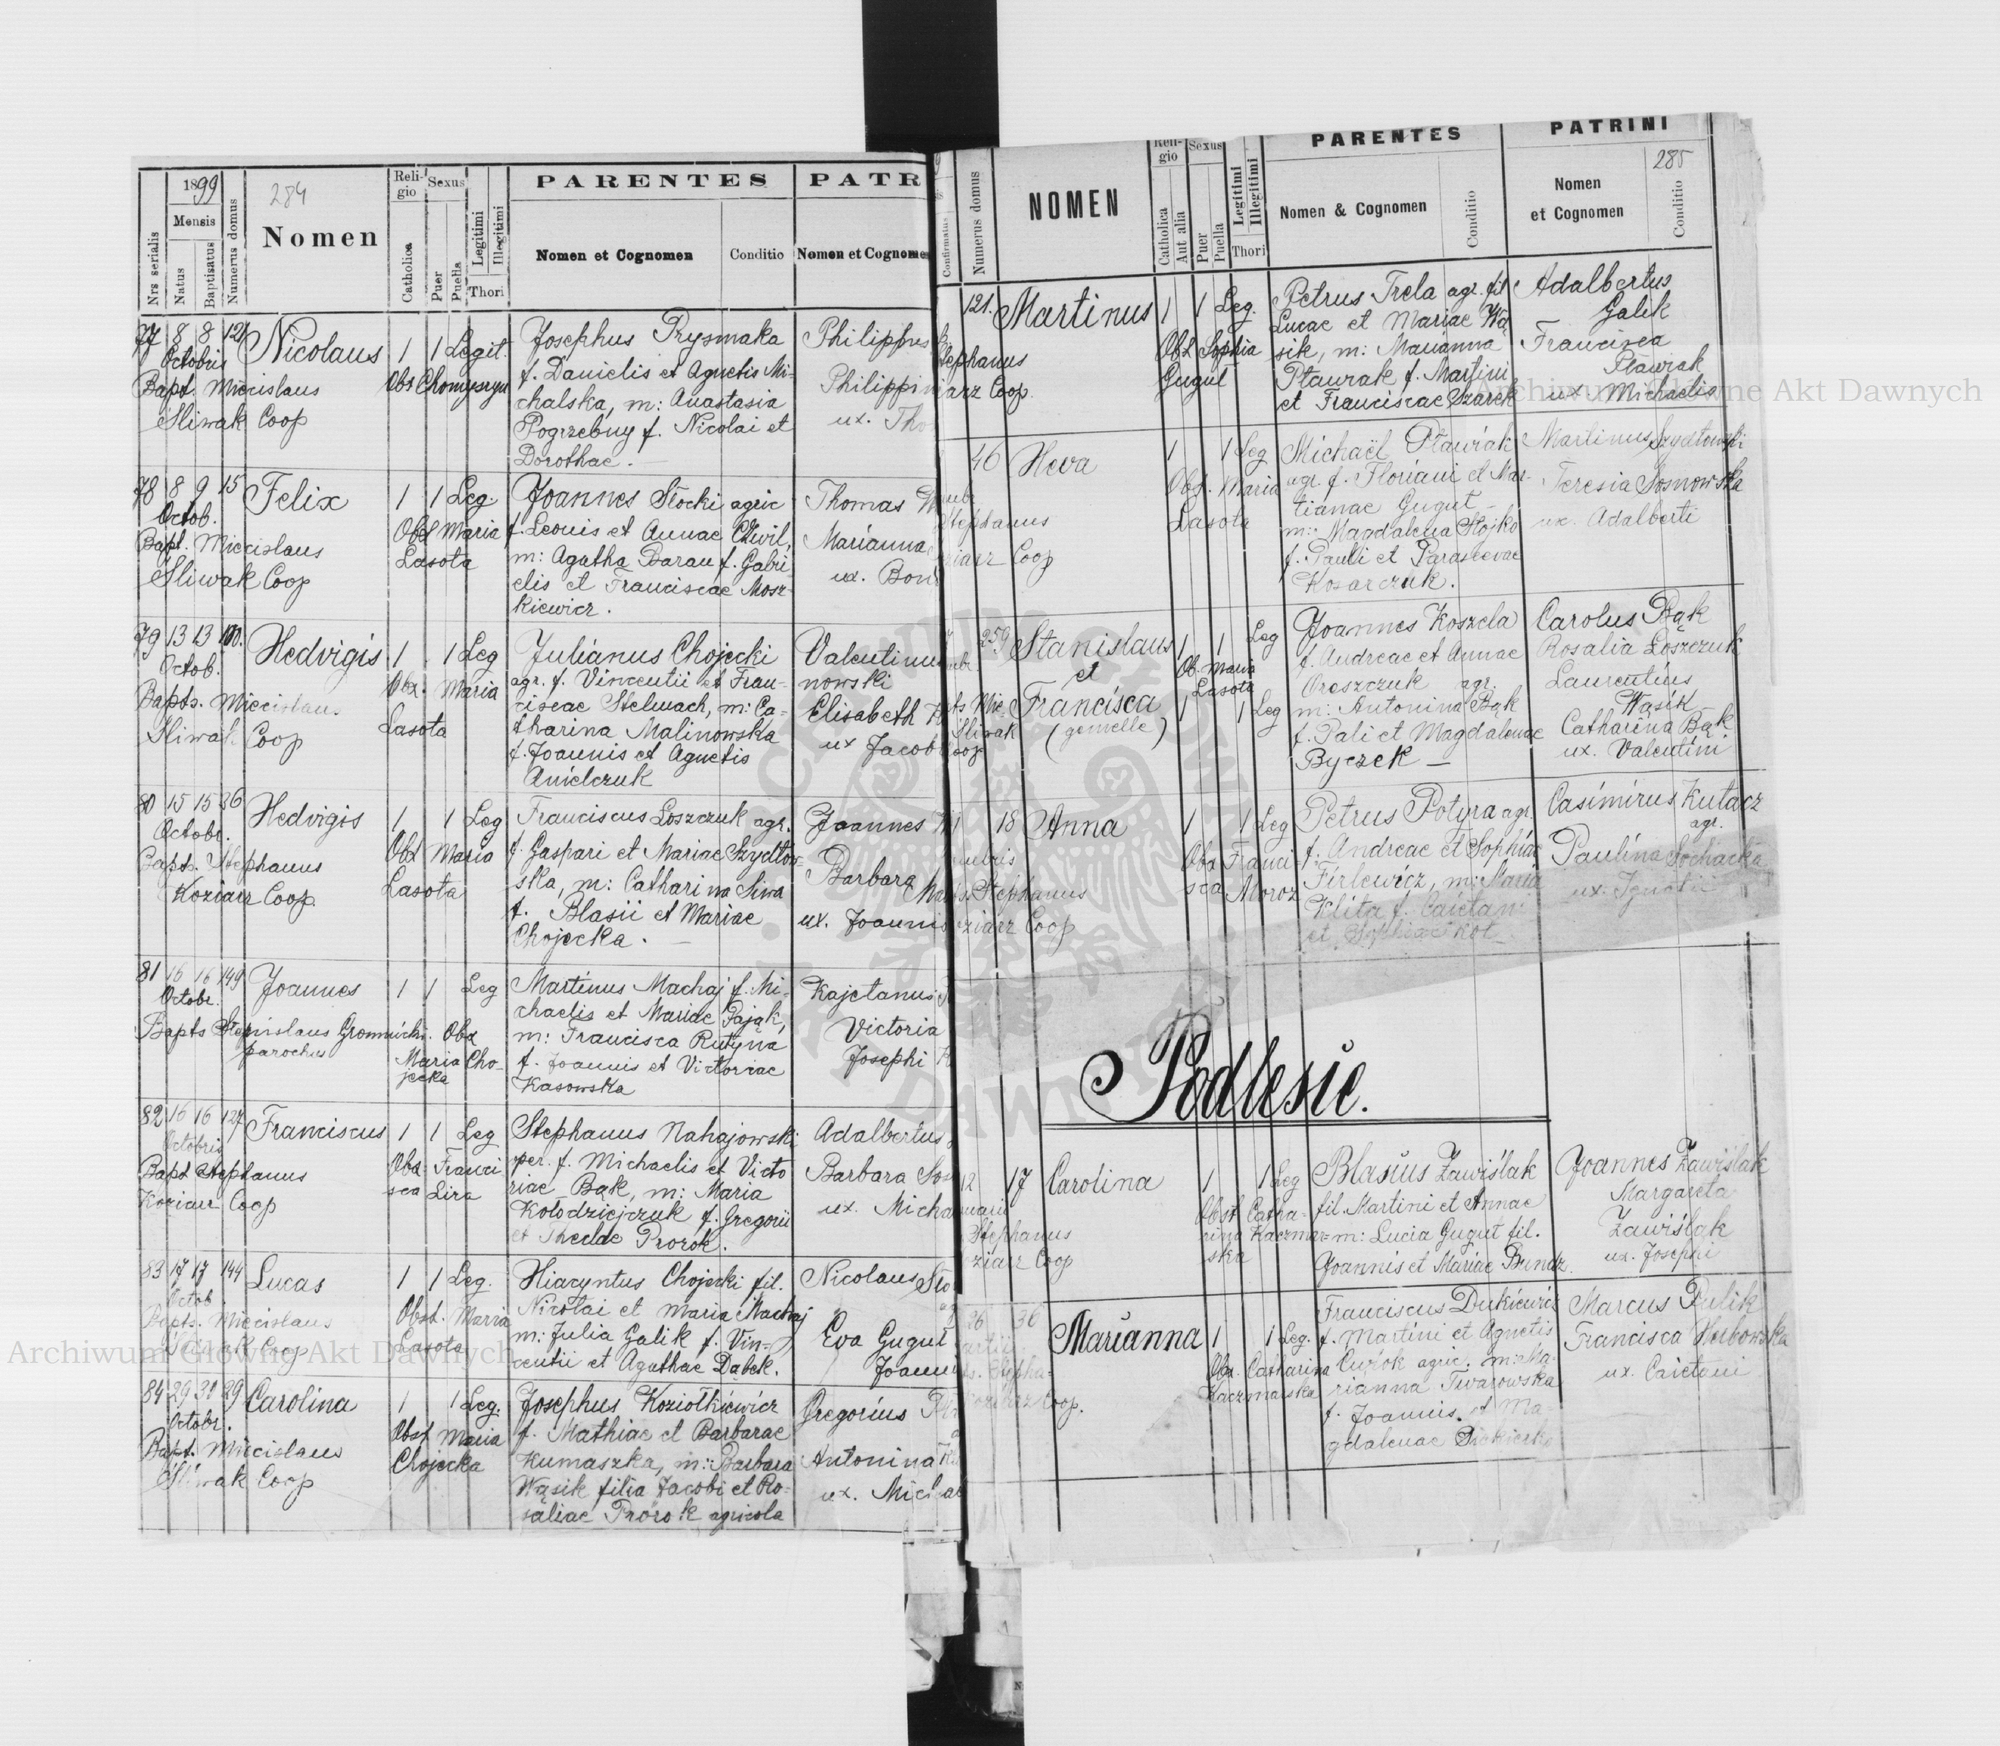 1899
284
Nrs serialis
Mensis
Natus
Baptisatus
Numerus domus
Nomen
Reli-
gio
Catholica
Sexus
Puer
Puella
Legitimi
Illegitimi
Thori
PARENTES
Nomen et Cognomen
Conditio
PATR
Nomen et Cognome
77 8 8 121
Octobris
Nicolaus
1 1 Legit.
Bapt. Miecislaus
Śliwak Coop
Josephus Prysmaka
f. Danielis et Agnetis Mi-
chalska, m: Anastasia
Pogrzebny f. Nicolai et
Dorothae.
Philippus
Philippin
ux. Tho
78 8 9 15
Octob.
Felix
1 1 Leg.
Obst Maria
Lasota
Bapt. Miecislaus
Śliwak Coop
Joannes Stocki agric
f. Leonis et Annae Chwil,
m: Agatha Baran f. Gabri-
elis et Franciscae Mosz-
kiewicz.
Thomas
Marianna
ux. Bon
79 13 13
Octob.
Hedvigis
1 1 Leg
Obst. Maria
Lasota
Bapts. Miecislaus
Śliwak Coop
Julianus Chojecki
agr. f. Vincentii et Fran-
ciscae Stelmach, m: Ca-
tharina Malinowska
f. Joannis et Agnetis
Anielczuk
Valentinus
nowski
Elisabeth
ux Jacob
80 15 15 36
Octobr.
Hedvigis
1 1 Leg
Obst Maria
Lasota
Bapt. Stephanus
Koziarz Coop.
Franciscus Łoszczuk agr.
f. Gaspari et Mariae Szydłow-
ska, m: Catharina Siwa
f. Blasii et Mariae
Chojecka.
Joannes
Barbara
ux. Joannis
81 16 16 149
Octobr.
Joannes
1 1 Leg
Bapts Stanislaus Gromnicki
parochus
Obst
Maria Cho-
jecka
Martinus Machaj f. Mi-
chaelis et Mariae Pająk,
m: Francisca Rutyna
f. Joannis et Victoriae
Kasowska
Kajetanus
Victoria
Josephi
82 16 16 127
Octobris
Franciscus
1 1 Leg
Obst. Franci
sca Lira
Bapt Stephanus
Koziarz Coop
Stephanus Nahajowski
per. f. Michaelis et Victo
riae Bąk, m: Maria
Kołodziejczuk f. Gregorii
et Theclae Prorok.
Adalbertus
Barbara
ux. Micha
83 17 17 144
Octob
Lucas
1 1 Leg.
Obst. Maria
Lasota
Bapts. Miecislaus
Śliwak Coop
Hiacyntus Chojecki fil.
Nicolai et Maria Machaj
m: Julia Galik f. Vin-
centii et Agathae Dąbek.
Nicolaus
Eva Gugul
Joann
84 29 31 29
Octobr.
Carolina
1 1 Leg.
Obst Maria
Chojecka
Bapt. Miecislaus
Śliwak Coop
Josephus Koziołkiewicz
f. Mathiae et Barbarae
Kumaszka, m: Barbara
Wąsik filia Jacobi et Ro-
saliae Prorok agricola
Gregorius
Antonina
ux. Michae
Numerus domus
NOMEN
Reli-
gio
Catholica
Aut alia
Sexus
Puer
Puella
Legitimi
Illegitimi
Thori
PARENTES
Nomen & Cognomen
Conditio
PATRINI
285
Nomen
et Cognomen
Conditio
121. Martinus 1 1 Leg.
Stephanus
Coop
Obst Sophia
Gugul
Petrus Trela agr. fil
Lucae et Mariae Wą
sik, m: Marianna
Pławiak f. Martini
et Franciscae Szarek
Adalbertus
Galik
Francisca
Pławiak
ux. Michaelis
46 Heva 1 1 Leg
Stephanus
Coop
Obst. Maria
Lasota
Michaël Pławiak
agr. f. Floriani et Mar-
tianae Gugul
m: Magdalena Stojko
f. Pauli et Parascevae
Kosarczuk.
Martinus Szydłowski
Teresia Sosnowska
ux. Adalberti
259 Stanislaus 1 1 Leg
et
Francisca 1 1 Leg
(gemelle)
Ob. Maria
Lasota
Śliwak
Coop
Joannes Koszela
f. Andreae et Annae
Oreszczuk agr.
m: Antonina Bąk
f. Pali et Magdalenae
Byczek
Carolus Bąk
Rosalia Łoszczuk
Laurentius
Wąsik
Catharina Bąk
ux. Valentini
18 Anna 1 1 Leg
Stephanus
Coop
Obst Franci-
sca Moroz
Petrus Potyra agr.
f. Andreae et Sophiae
Firlewicz, m: Maria
Klita f. Caietani
et Sophiae Kot
Casimirus Kutacz
agr.
Paulina Sochacka
ux. Ignatii
Podlesie.
17 Carolina 1 1 Leg
Stephanus
Coop
Obst Catha-
rina Kaczmar-
ska
Blasius Zawiślak
fil. Martini et Annae
m: Lucia Gugul fil.
Joannis et Mariae Bundz.
Joannes Zawiślak
Margareta
Zawiślak
ux. Josephi
26 36 Marianna 1 1 Leg.
Coop.
Obst. Catharina
Kaczmarska
Franciscus Dukiewicz
f. Martini et Agnetis
Cwiok agric. m: Ma-
rianna Twarowska
f. Joannis et Ma-
gdalenae
Marcus Pulik
Francisca Herbowska
ux. Caietani
Archiwum Główne Akt Dawnych
Archiwum Główne Akt Dawnych